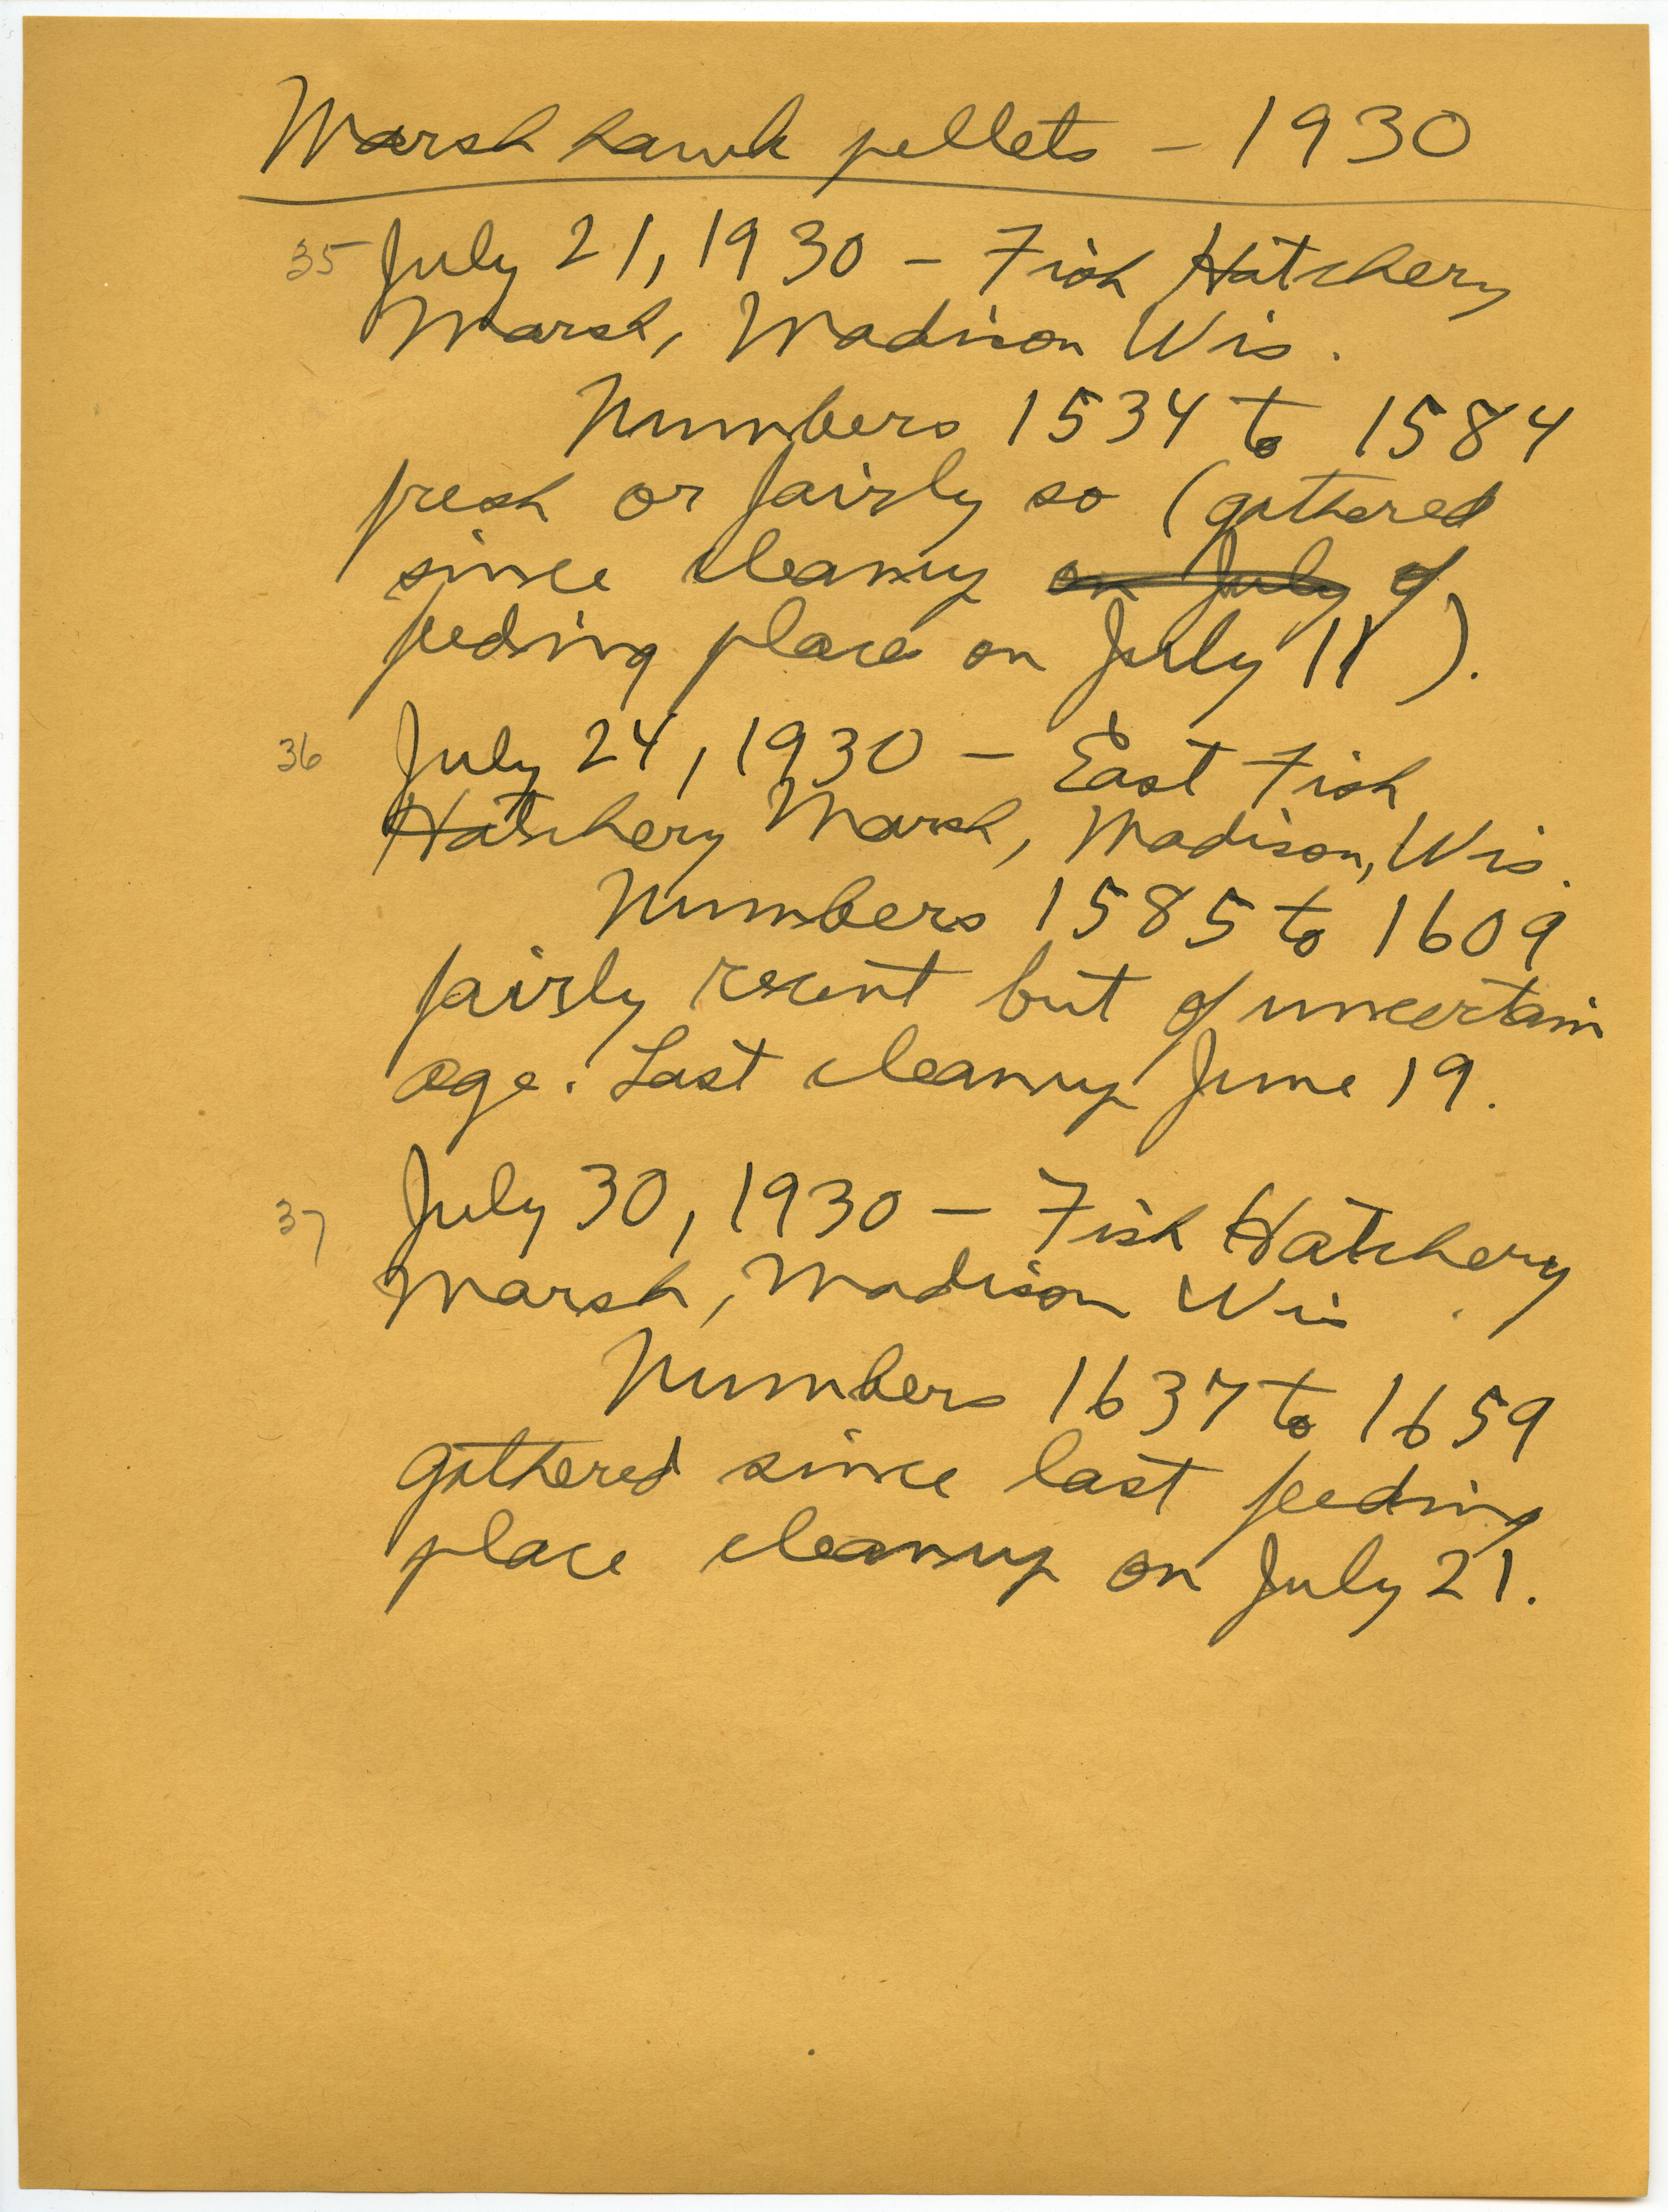 Marsh hawk pellets - 1930
35 July 21, 1930 - Fish Hatchery
Marsh, Madison Wis.
Numbers 1534 to 1584
fresh or fairly so (gathered
since cleanup on July of
feeding place on July 11).
36 July 24, 1930 - East Fish
Hatchery Marsh, Madison, Wis.
Numbers 1585 to 1609
fairly recent but of uncertain
age. Last cleanup June 19.
37 July 30, 1930 - Fish Hatchery
Marsh, Madison Wis.
Numbers 1637 to 1659
gathered since last feeding
place cleanup on July 21.